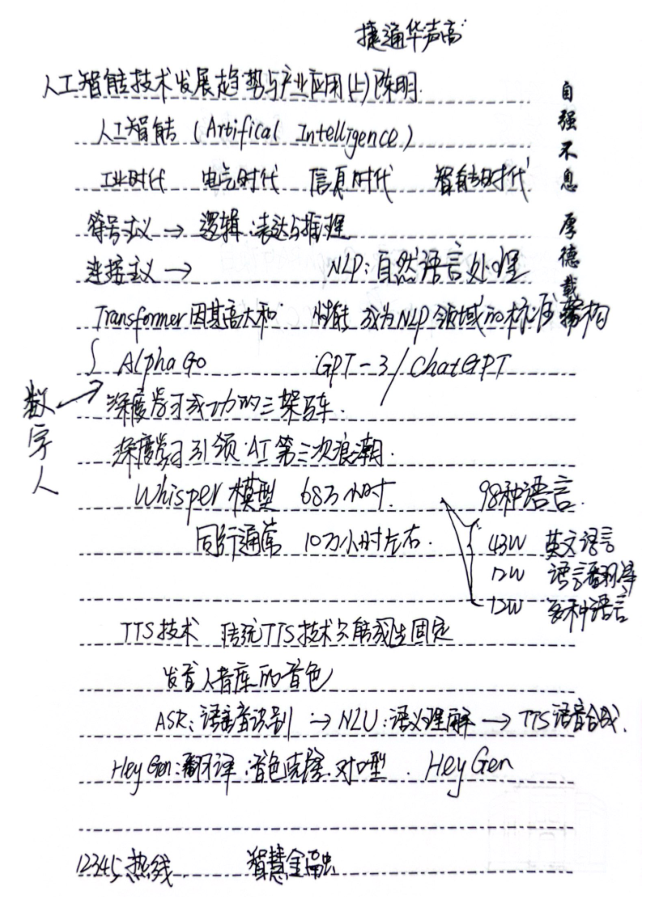 捷通华声高
人工智能技术发展趋势与产业应用(上)陈明.
人工智能 (Artifical Intelligence)
工业时代 电气时代 信息时代 智能时代
符号主义 → 逻辑:表达与推理
连接主义 → NLP:自然语言处理
Transformer因其高大和 性能 成为NLP领域的标准结构
AlphaGo GPT-3/ChatGPT
数字人
深度学习成功的三架马车.
深度学习引领AI第三次浪潮.
Whisper模型 68万小时. 98种语言.
同行通常 10万小时左右. 43W 英文语言
12W 语言翻译
12W 多种语言
TTS技术 传统TTS技术只能预先固定
发音人音库的音色
ASR:语音识别 → NLU:语义理解 → TTS语音合成.
HeyGen:翻译.音色克隆.对口型. HeyGen
12345热线 智慧金融
自强不息 厚德载物